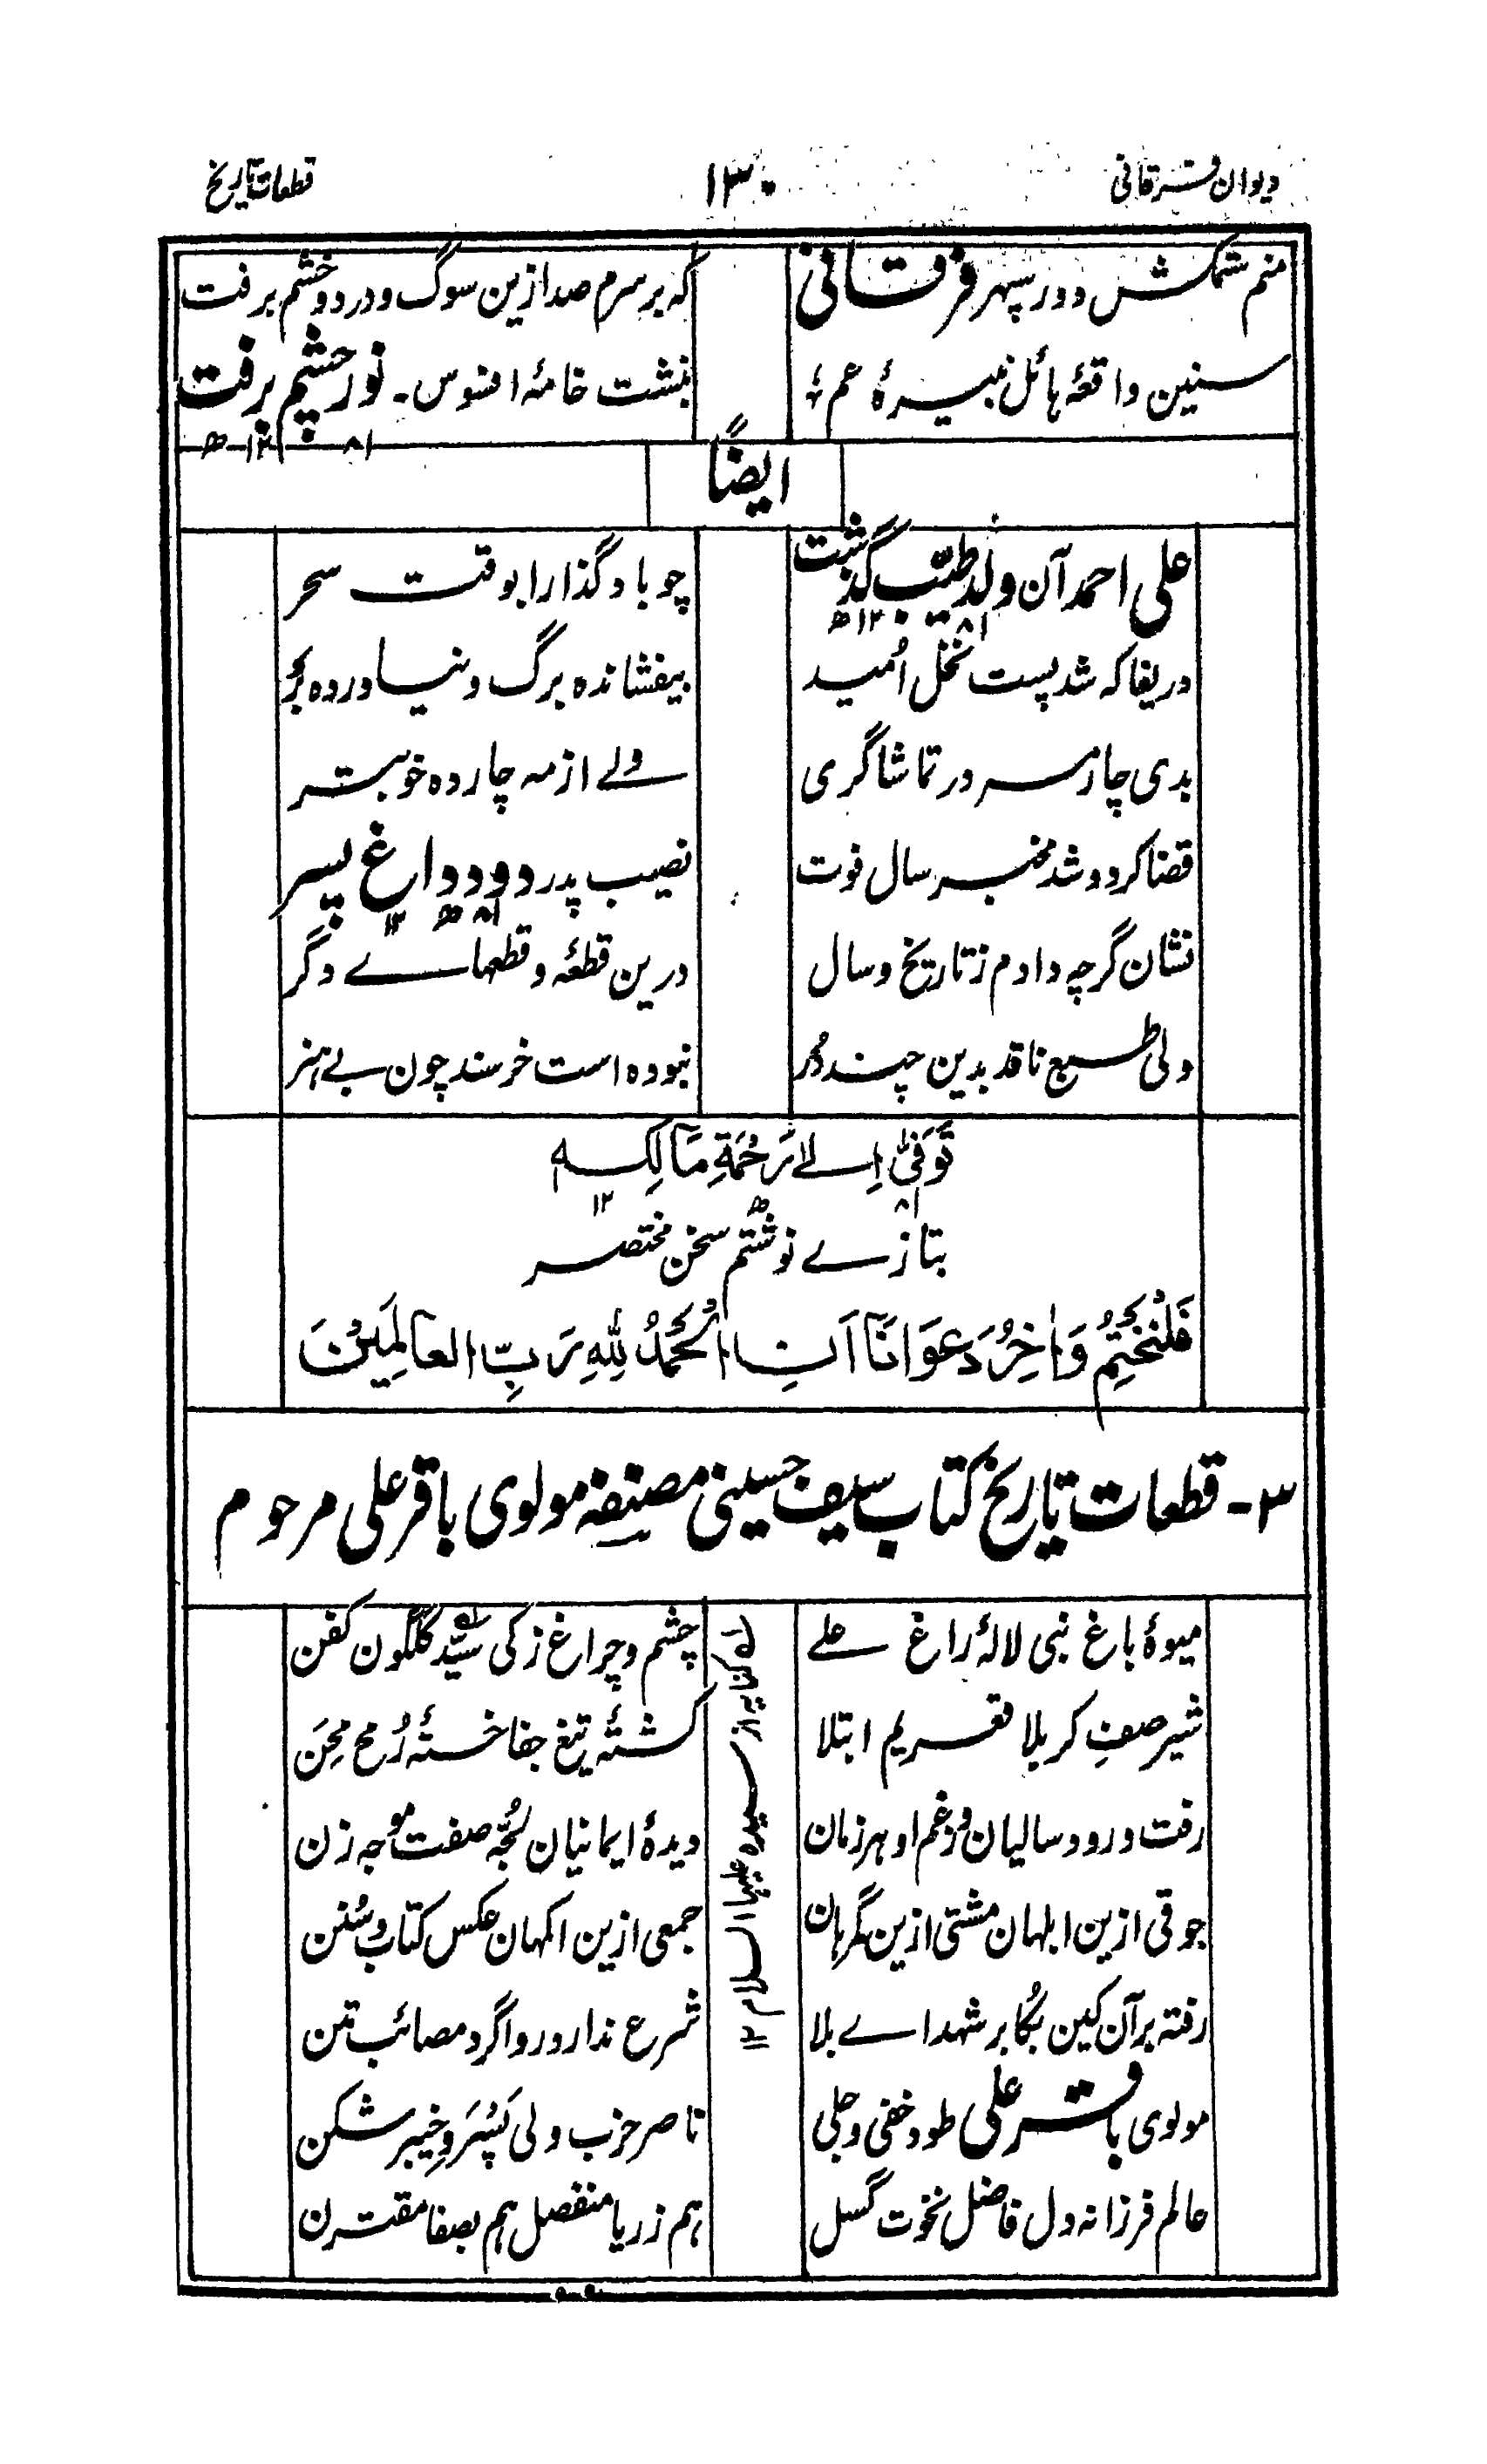 دیوان فرقانی ۱۳۰ قطعات تاریخ
منم ستمکش دور سپهر فرقانی که بر سرم صد ازین سوگ و درد و خشم برفت
سنین واقعهٔ هائل نبیرهٔ عم نبشت خامهٔ افسوس۔ نور چشم برفت
۱۲۸۱ھ
ایضاً
علی احمد آن ولد طیّب گذشت چو باد گذارا بوقت سحر
۱۲۸۱ھ
دریغا که شد پست نخل اُمید بیفشانده برگ و نیاورده بر
بدی چارمه در تماشاگری ولے از مه چارده خوبتر
قضا کرد و شد مخبر سال فوت نصیب پدر دود و داغ پسر
۱۲۸۱ھ
نشان گرچه دادم ز تاریخ و سال درین قطعه و قطعهاے دگر
ولی طبع ناقد بدین چند دُر نبوده است خرسند چون بے هنر
تَوَفّیٰ اِلےٰ رَحْمَةِ مَالِکِه
۱۲۸۱ھ
بتازے نوشتم سخن مختصر
فَلْنَخْتِمُ وَاٰخِرُ دَعوَانَا اَنِ الْحَمْدُ لِلّٰهِ رَبِّ العَالَمِیْنَ
۳- قطعات تاریخ کتاب سیف حسینی مصنفهٔ مولوی باقر علی مرحوم
میوهٔ باغ نبی لالهٔ راغ علے چشم و چراغ زکی سیّد گلگون کفن
شیر صفِ کربلا قریم ابتلا کشتهٔ تیغ جفا خستهٔ رُمح مِحَن
رفت و رود سالیان وز غم او هر زمان دیدهٔ ایمانیان لُجّه صفت موجه زن
جوقی ازین ابلهان مشتی ازین گمرهان جمعی ازین اکمهان عکس کتاب و سُنن
رفته بر آن کین بُکا بر شهداے بلا شرع ندارد روا گرد مصائب متن
مولوی باقر علی طود خفی و جلی ناصر حزب ولی پَسْرَوِ خیبر شکن
عالم فرزانه دل فاضل نخوت گسل هم ز ریا منفصل هم بصفا مقترن
لے کنایه از سیده علیها السلام ۱۲